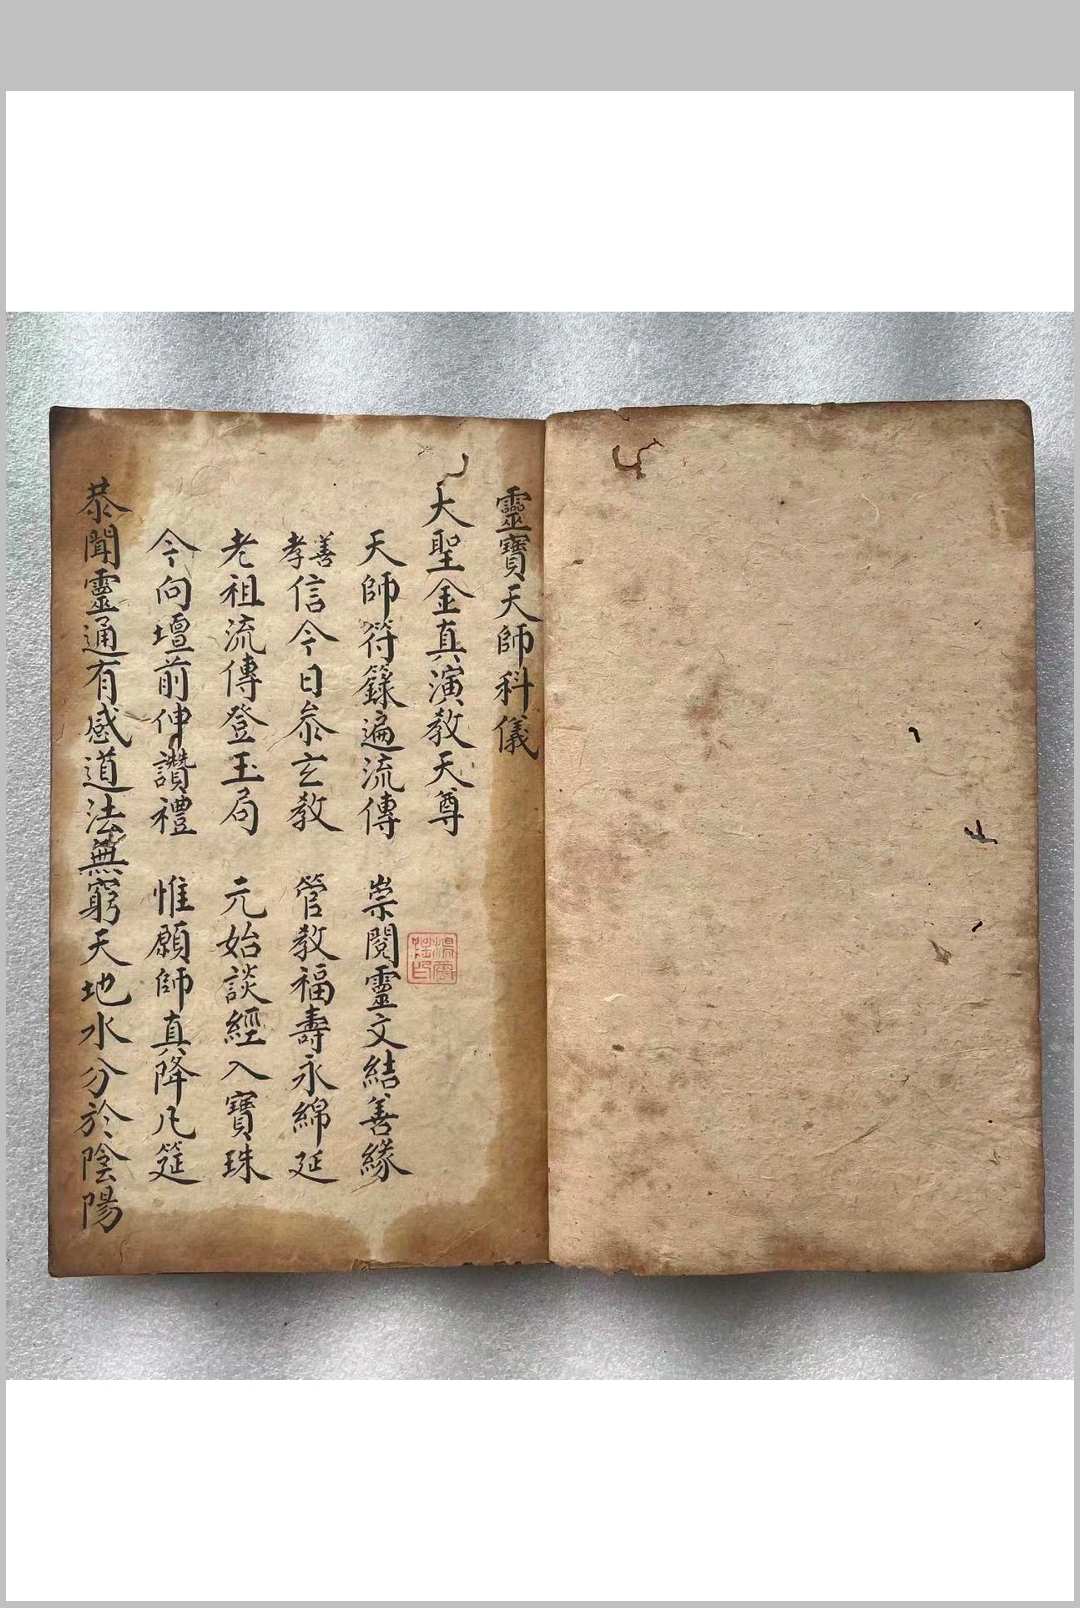 靈寶天師科儀
大聖金真演教天尊
天師符籙遍流傳 崇閱靈文結善緣
善孝信今日叅玄教 管教福壽永綿延
老祖流傳登玉局 元始談經入寶珠
今向壇前伸讚禮 惟願師真降凡筵
恭聞靈通有感道法無窮天地水分於陰陽